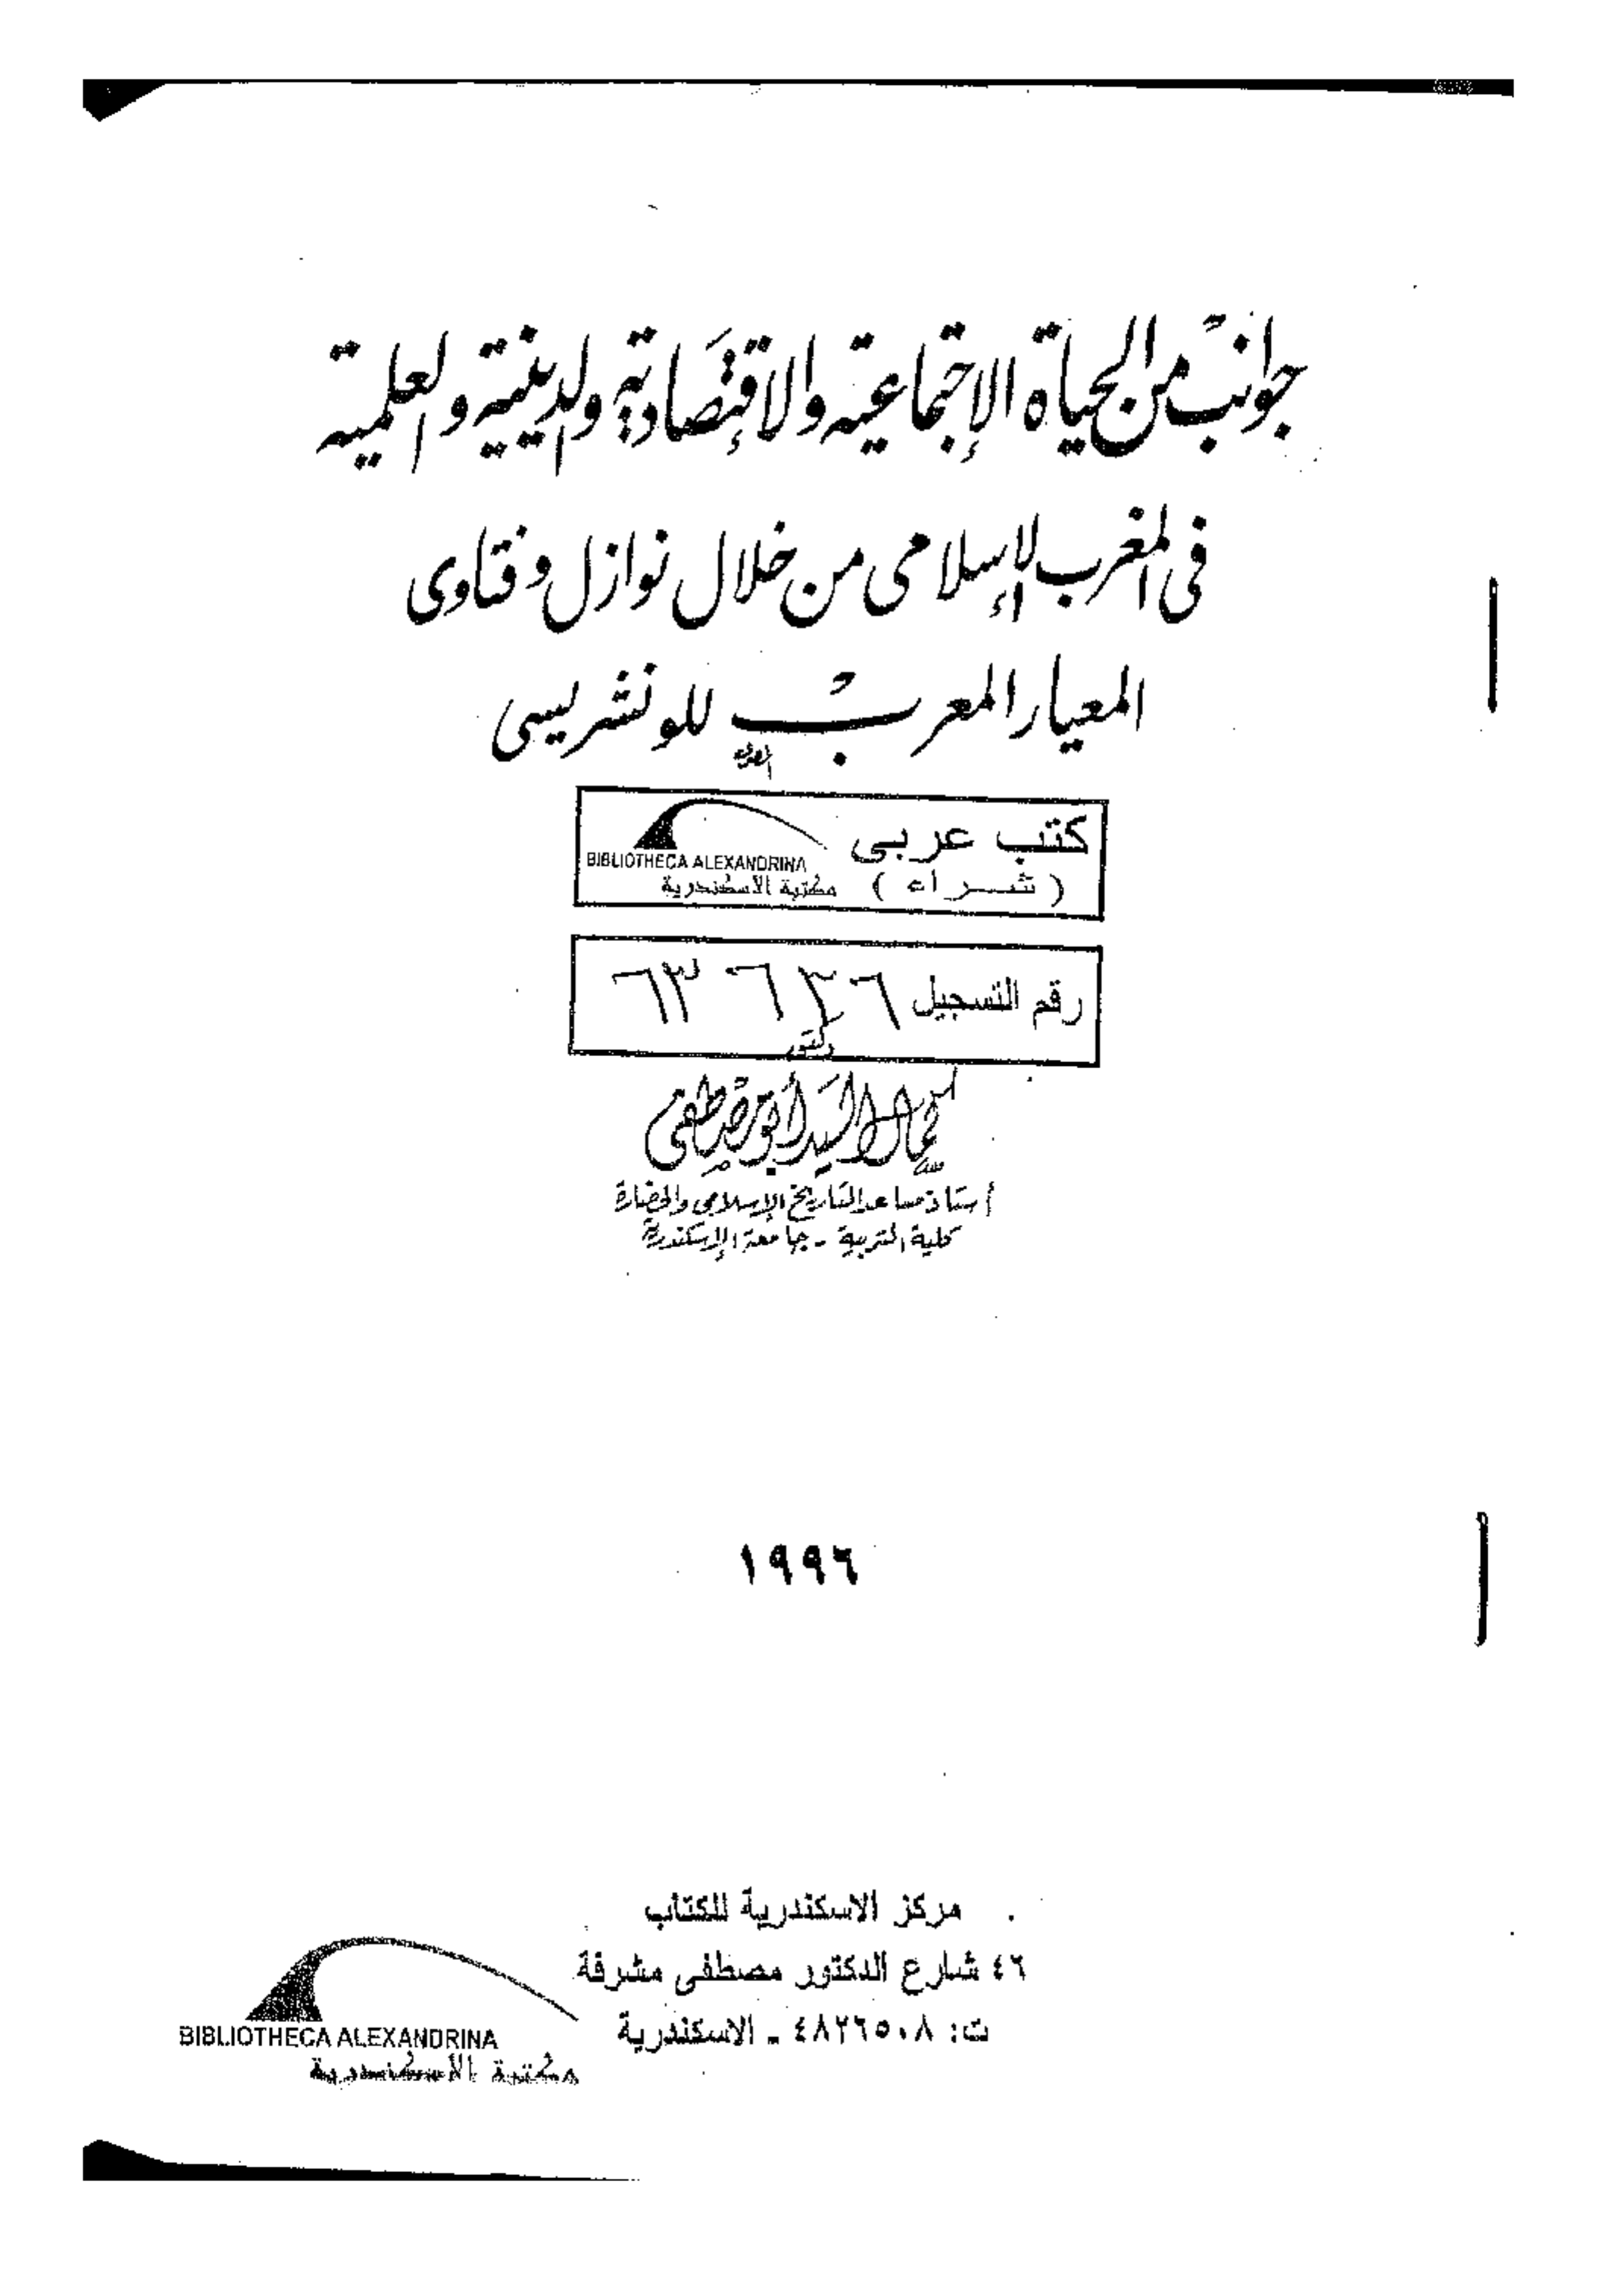 جوانب من الحياة الإجتماعية والإقتصادية والدينية والعلمية
فى المغرب الإسلامى من خلال نوازل وفتاوى
المعيار المعرب للونشريسى
كتب عربى
(شراء)
BIBLIOTHECA ALEXANDRINA
مكتبة الاسكندرية
رقم التسجيل ٦٣٦٣٦
دكتور
كمال السيد أبو مصطفى
أستاذ مساعد التاريخ الإسلامى والحضارة
كلية التربية - جامعة الإسكندرية
١٩٩٦
مركز الاسكندرية للكتاب
٤٦ شارع الدكتور مصطفى مشرفة
ت: ٤٨٢٦٥٠٨ - الاسكندرية
BIBLIOTHECA ALEXANDRINA
مكتبة الاسكندرية